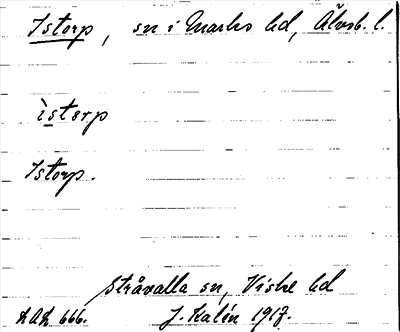 Istorp, sn i Marks hd, Älvsb. l.
ìsterp
Istorp.
Stråvalla sn, Viske hd
J. Kalén 1917.